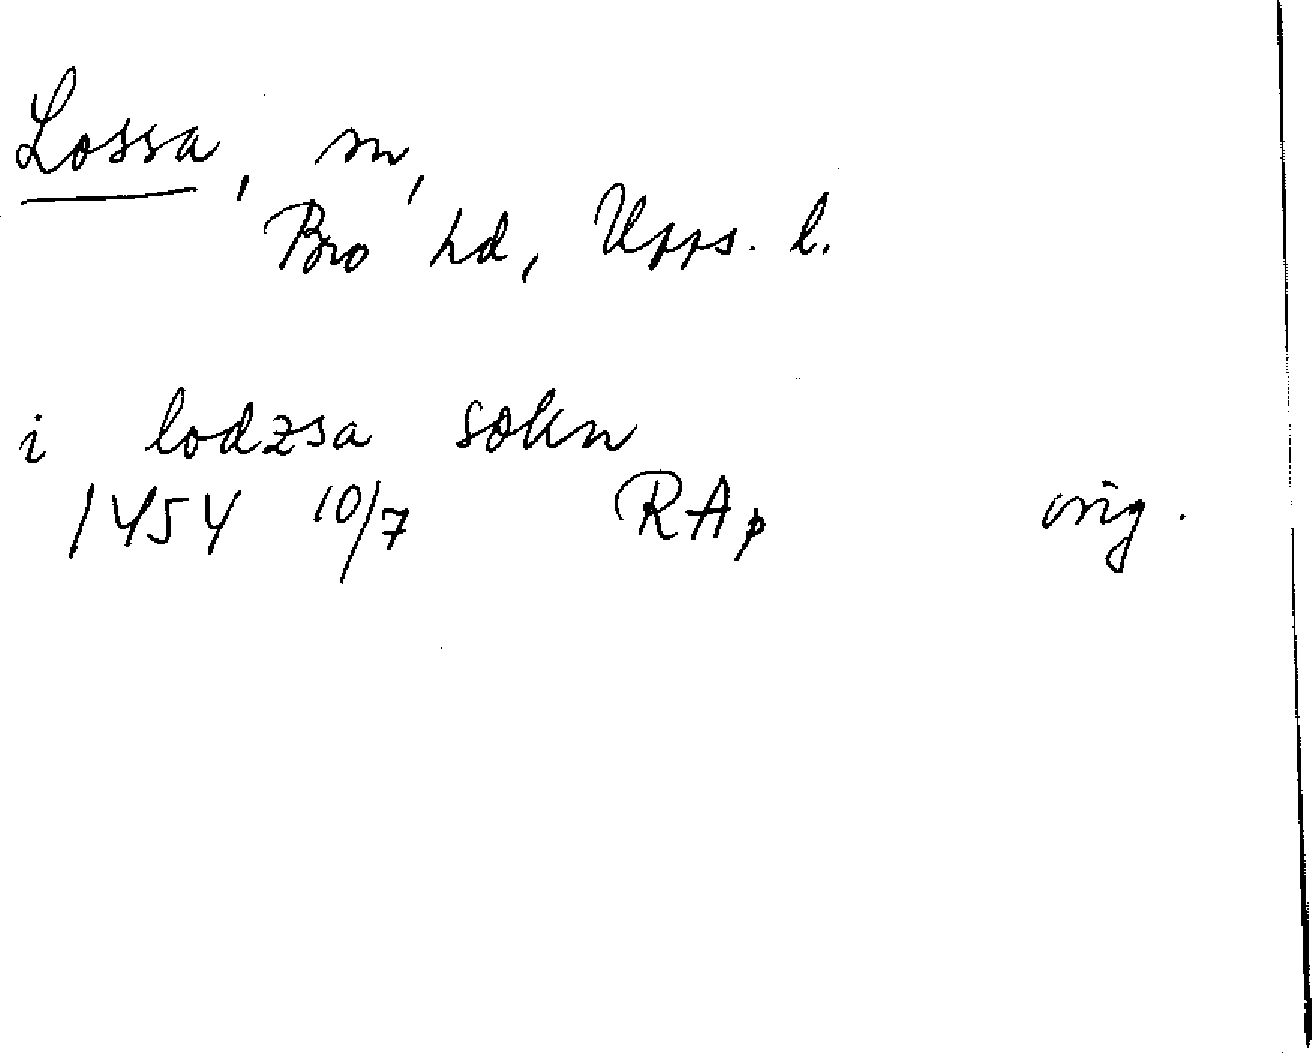 Lossa, sn,
Bro hd, Upps. l.
i lodzsa sokn
1454 10/7 RAp orig.